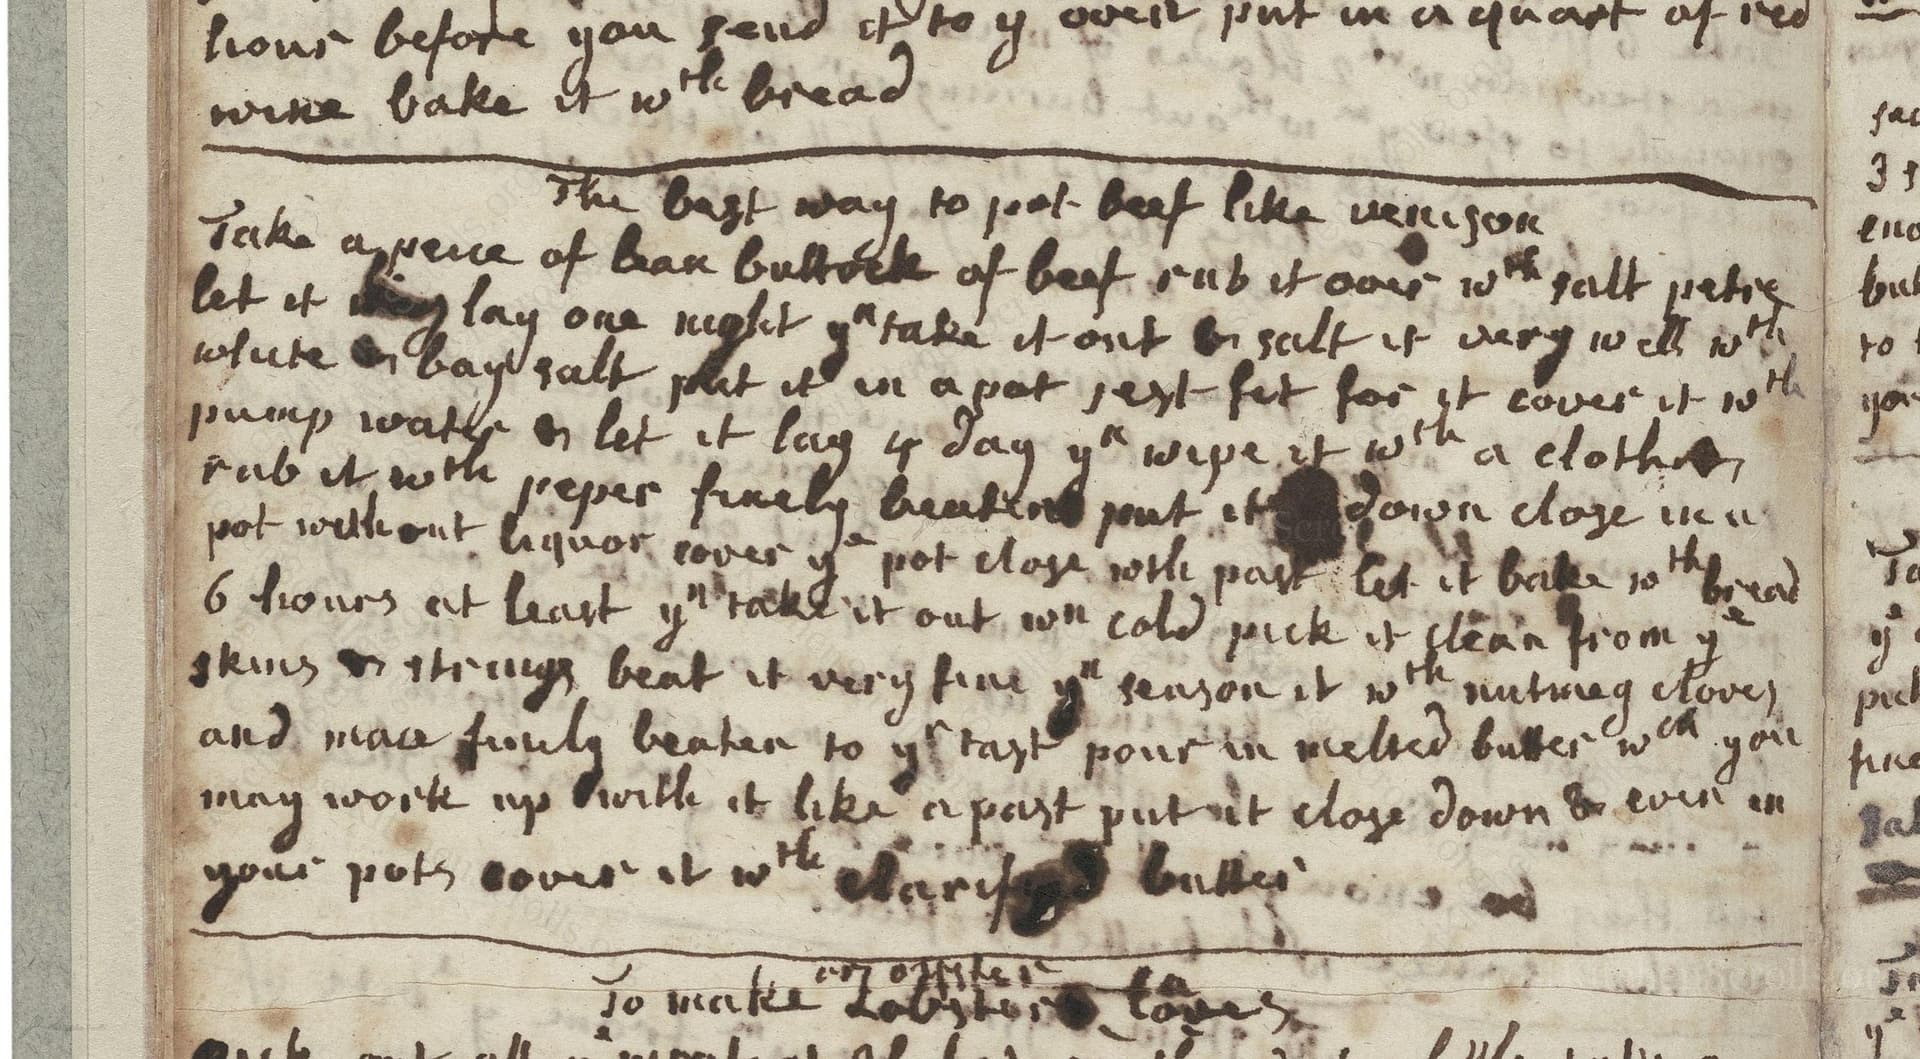 hour before you send it to y oven put in a quart of red
wine bake it wth bread
The best way to pot beef like venison
Take a peice of lean buttock of beef rub it over wth salt petre
let it lay one night yn take it out & salt it very well wth
white & bay salt put it in a pot jest fit for it cover it wth
pump water & let it lay 4 day yn wipe it wth a cloth &
rub it wth peper finely beaten put it down close in a
pot without liquor cover ye pot close with past let it bake wth bread
6 hours at least yn take it out wn cold pick it clean from ye
skins & strings beat it very fine yn season it wth nutmeg cloves
and mace finely beaten to yr tast pour in melted butter wch you
may work up with it like a past put it close down & even in
your pots cover it wth clarifyd butter
or oysster
To make Lobster loves